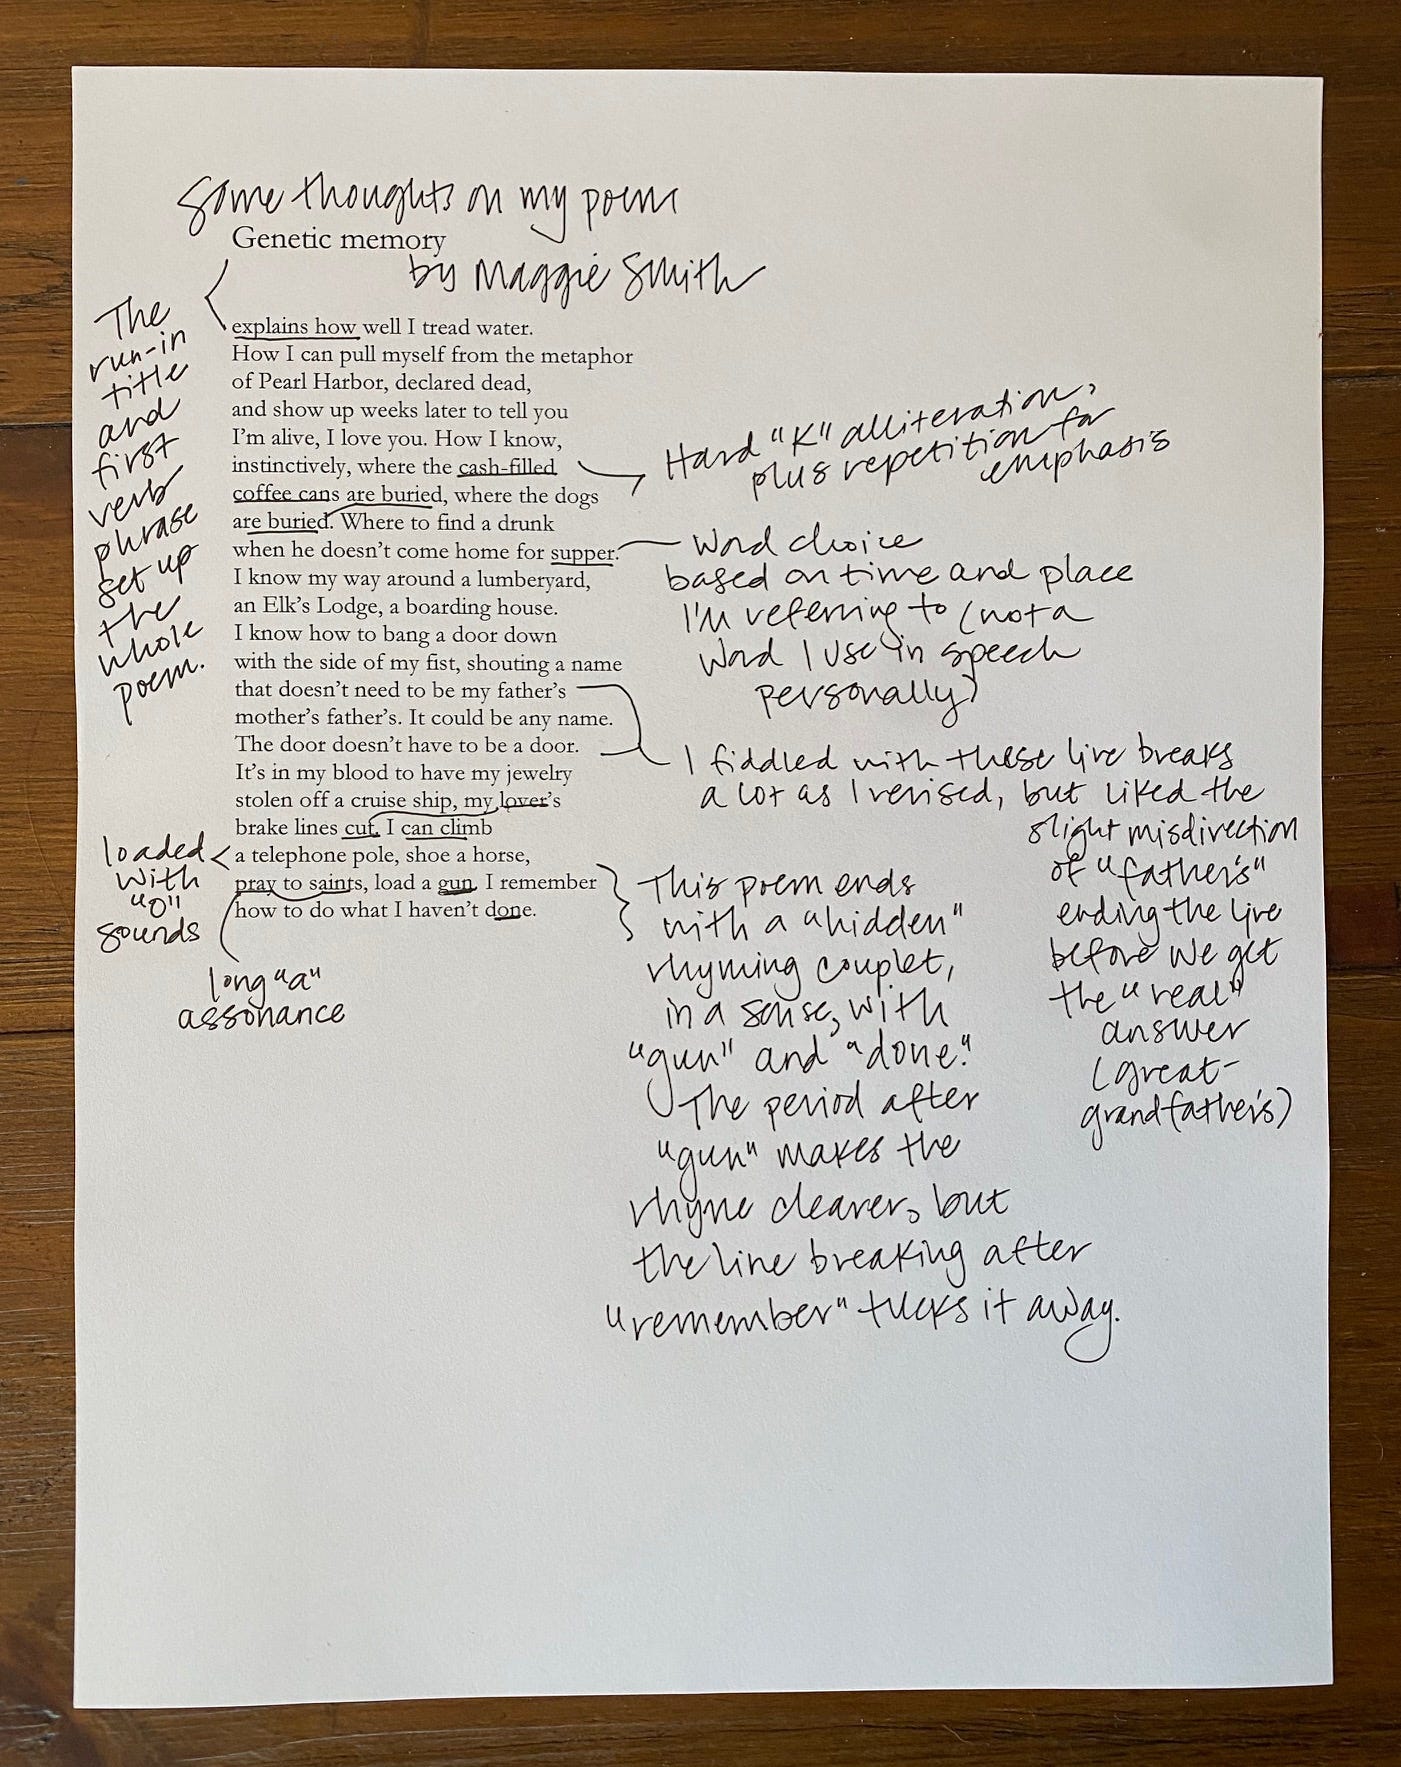 some thoughts on my poem
Genetic memory
by Maggie Smith
explains how well I tread water.
How I can pull myself from the metaphor
of Pearl Harbor, declared dead,
and show up weeks later to tell you
I'm alive, I love you. How I know,
instinctively, where the cash-filled
coffee cans are buried, where the dogs
are buried. Where to find a drunk
when he doesn't come home for supper.
I know my way around a lumberyard,
an Elk's Lodge, a boarding house.
I know how to bang a door down
with the side of my fist, shouting a name
that doesn't need to be my father's
mother's father's. It could be any name.
The door doesn't have to be a door.
It's in my blood to have my jewelry
stolen off a cruise ship, my lover's
brake lines cut. I can climb
a telephone pole, shoe a horse,
pray to saints, load a gun. I remember
how to do what I haven't done.
The
run-in
title
and
first
verb
phrase
set up
the
whole
poem.
loaded
with
"O"
sounds
long "a"
assonance
Hard "K" alliteration,
plus repetition for
emphasis
Word choice
based on time and place
I'm referring to (not a
word I use in speech
personally)
I fiddled with these line breaks
a lot as I revised, but liked the
slight misdirection
of "father's"
ending the line
before we get
the "real"
answer
(great-
grandfather's)
This poem ends
with a "hidden"
rhyming couplet,
in a sense, with
"gun" and "done."
The period after
"gun" makes the
rhyme clearer, but
the line breaking after
"remember" tucks it away.